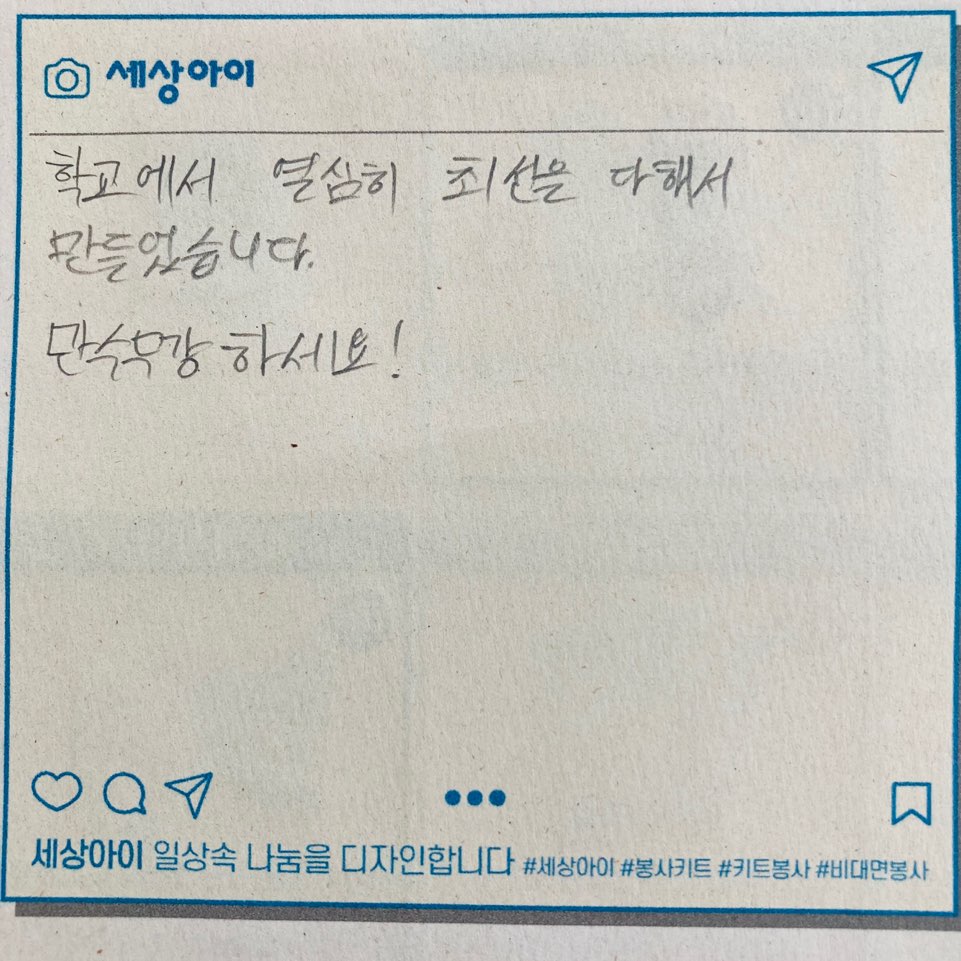 세상아이
학교에서 열심히 최선을 다해서
만들었습니다.
만수무강 하세요!
세상아이 일상속 나눔을 디자인합니다 #세상아이 #봉사키트 #키트봉사 #비대면봉사